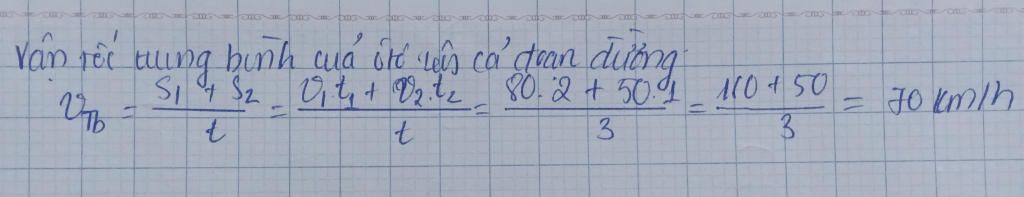 Vận tốc trung bình cuả ôtô trên cả đoạn đường
v_Tb = (S₁ + S₂)/t = (v₁.t₁ + v₂.t₂)/t = (80.2 + 50.1)/3 = (160 + 50)/3 = 70 km/h